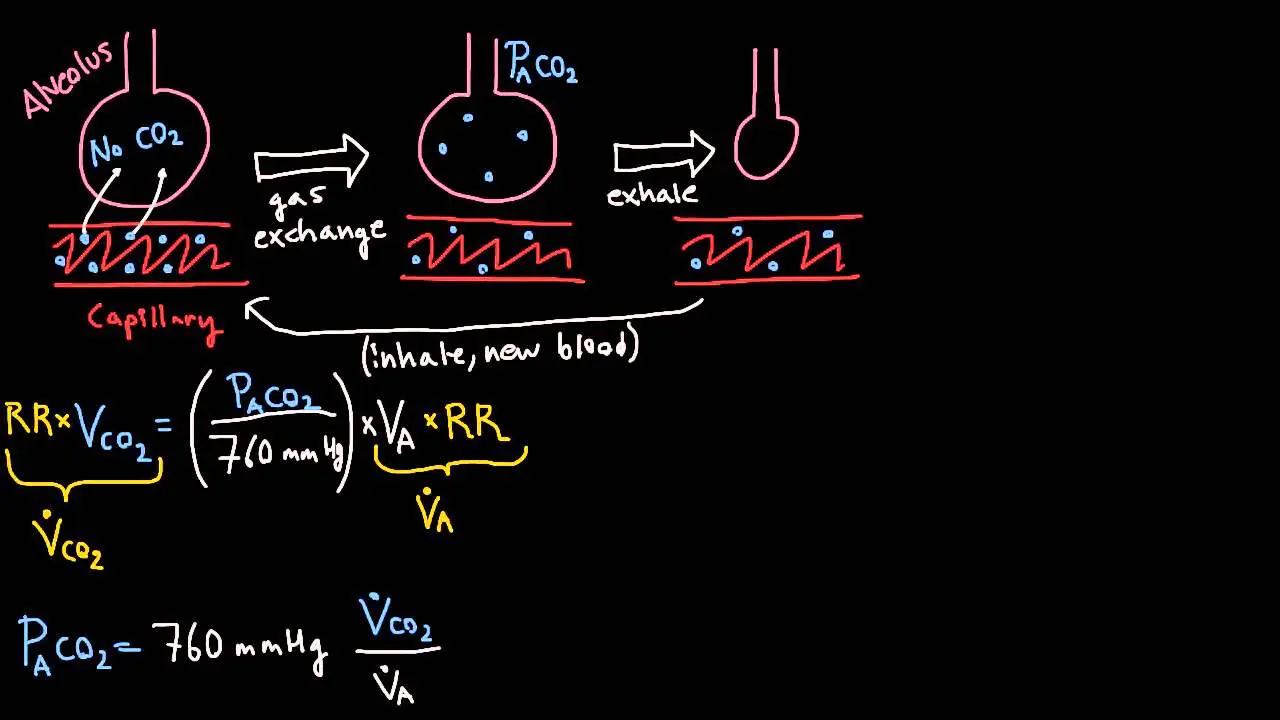 Alveolus
No CO₂
gas
exchange
P_A CO₂
exhale
Capillary
(inhale, new blood)
RR × V_CO₂ = (P_A CO₂ / 760 mmHg) × V_A × RR
V̇_CO₂
V̇_A
P_A CO₂ = 760 mmHg V̇_CO₂ / V̇_A